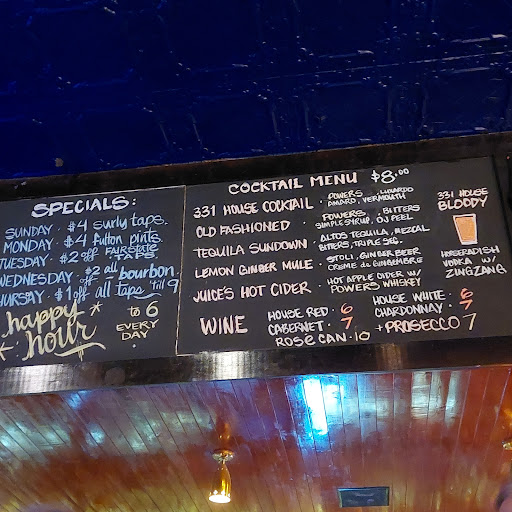 SPECIALS:
SUNDAY · $4 surly taps.
MONDAY · $4 fulton pints.
TUESDAY · $2 off
WEDNESDAY · $2 off all bourbon.
THURSDAY · $1 off all taps 'till 9
happy hour
to 6
EVERY DAY
COCKTAIL MENU $8.00
331 HOUSE COCKTAIL · POWERS, LUXARDO AMARO, VERMOUTH
OLD FASHIONED · POWERS, BITTERS SIMPLE SYRUP, OJ PEEL
TEQUILA SUNDOWN · ALTOS TEQUILA, MEZCAL BITTERS, TRIPLE SEC.
LEMON GINGER MULE · STOLI, GINGER BEER CREME de GINGEMBRE
JUICE'S HOT CIDER · HOT APPLE CIDER W/ POWERS WHISKEY
331 HOUSE
BLOODY
HORSERADISH
VODKA W/
ZINGZANG
WINE
HOUSE RED · 6
HOUSE WHITE · 6
CABERNET · 7
CHARDONNAY · 7
ROSE CAN · 10
+ PROSECCO 7